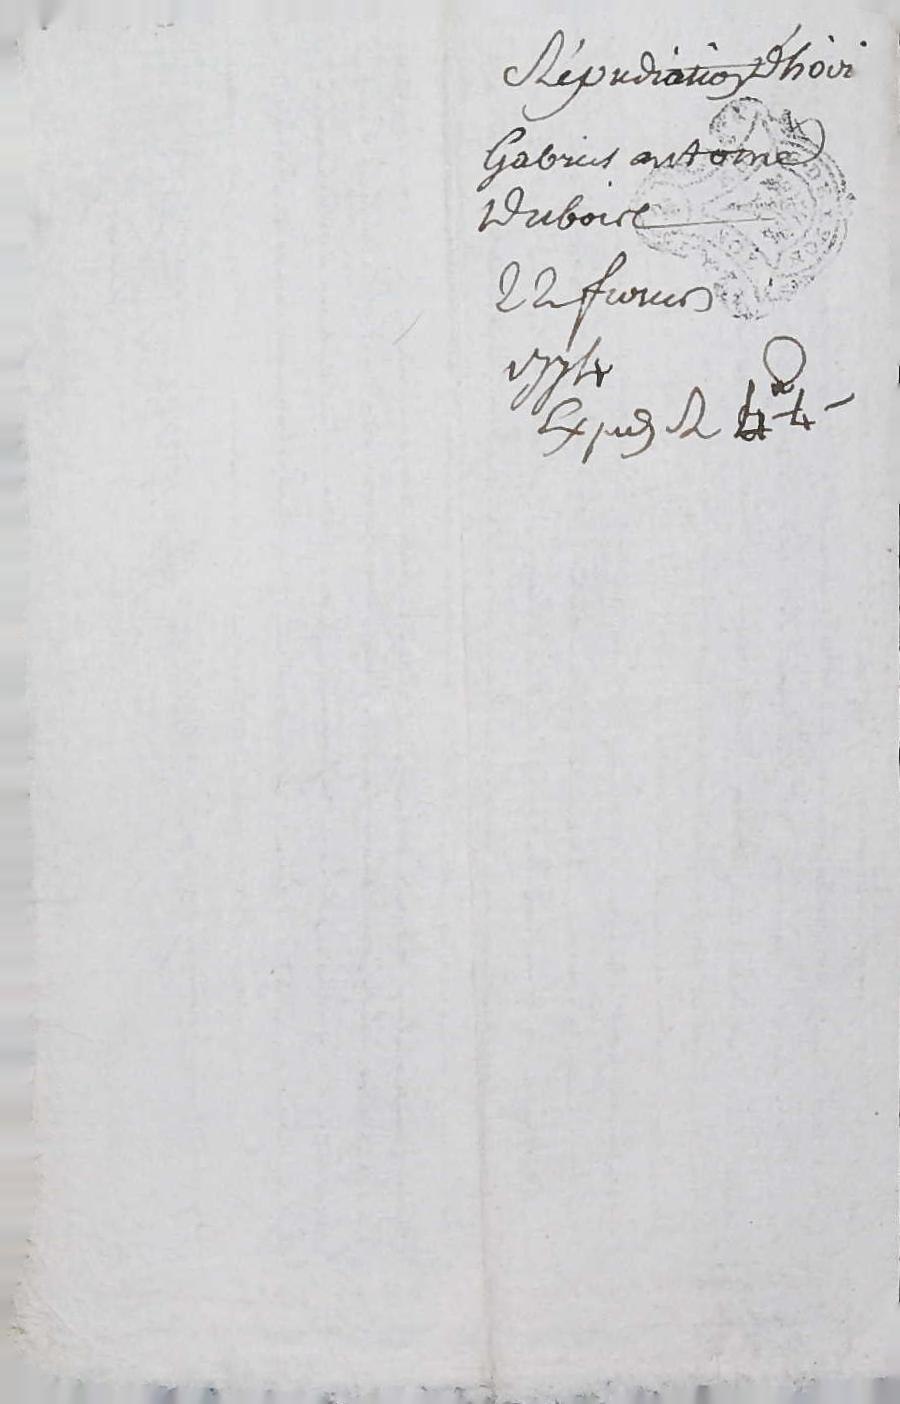 Répudiation d'hoirie
Gabriel antoine
Duboise
22 fevrier
1774
Exped R